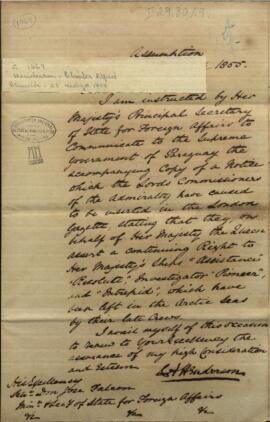 I-29.30.19.
Assumption
1855.
I am instructed by Her
Majesty's Principal Secretary
of State for Foreign Affairs to
Communicate to the Supreme
Government of Paraguay the
accompanying Copy of a Notice
which the Lords Commissioners
of the Admiralty have caused
to be inserted in the London
Gazette, stating that they, on
behalf of Her Majesty the Queen
assert a continuing Right to
Her Majesty's Ships "Assistance"
"Resolute", "Investigator" "Pioneer"
and "Intrepid", which have
been left in the Arctic Seas
by their late Crews.
I avail myself of this occasion
to renew to Your Excellency the
assurance of my high Consideration
and Esteem
Henderson
His Excellency
Don José Falcon
of State for Foreign Affairs